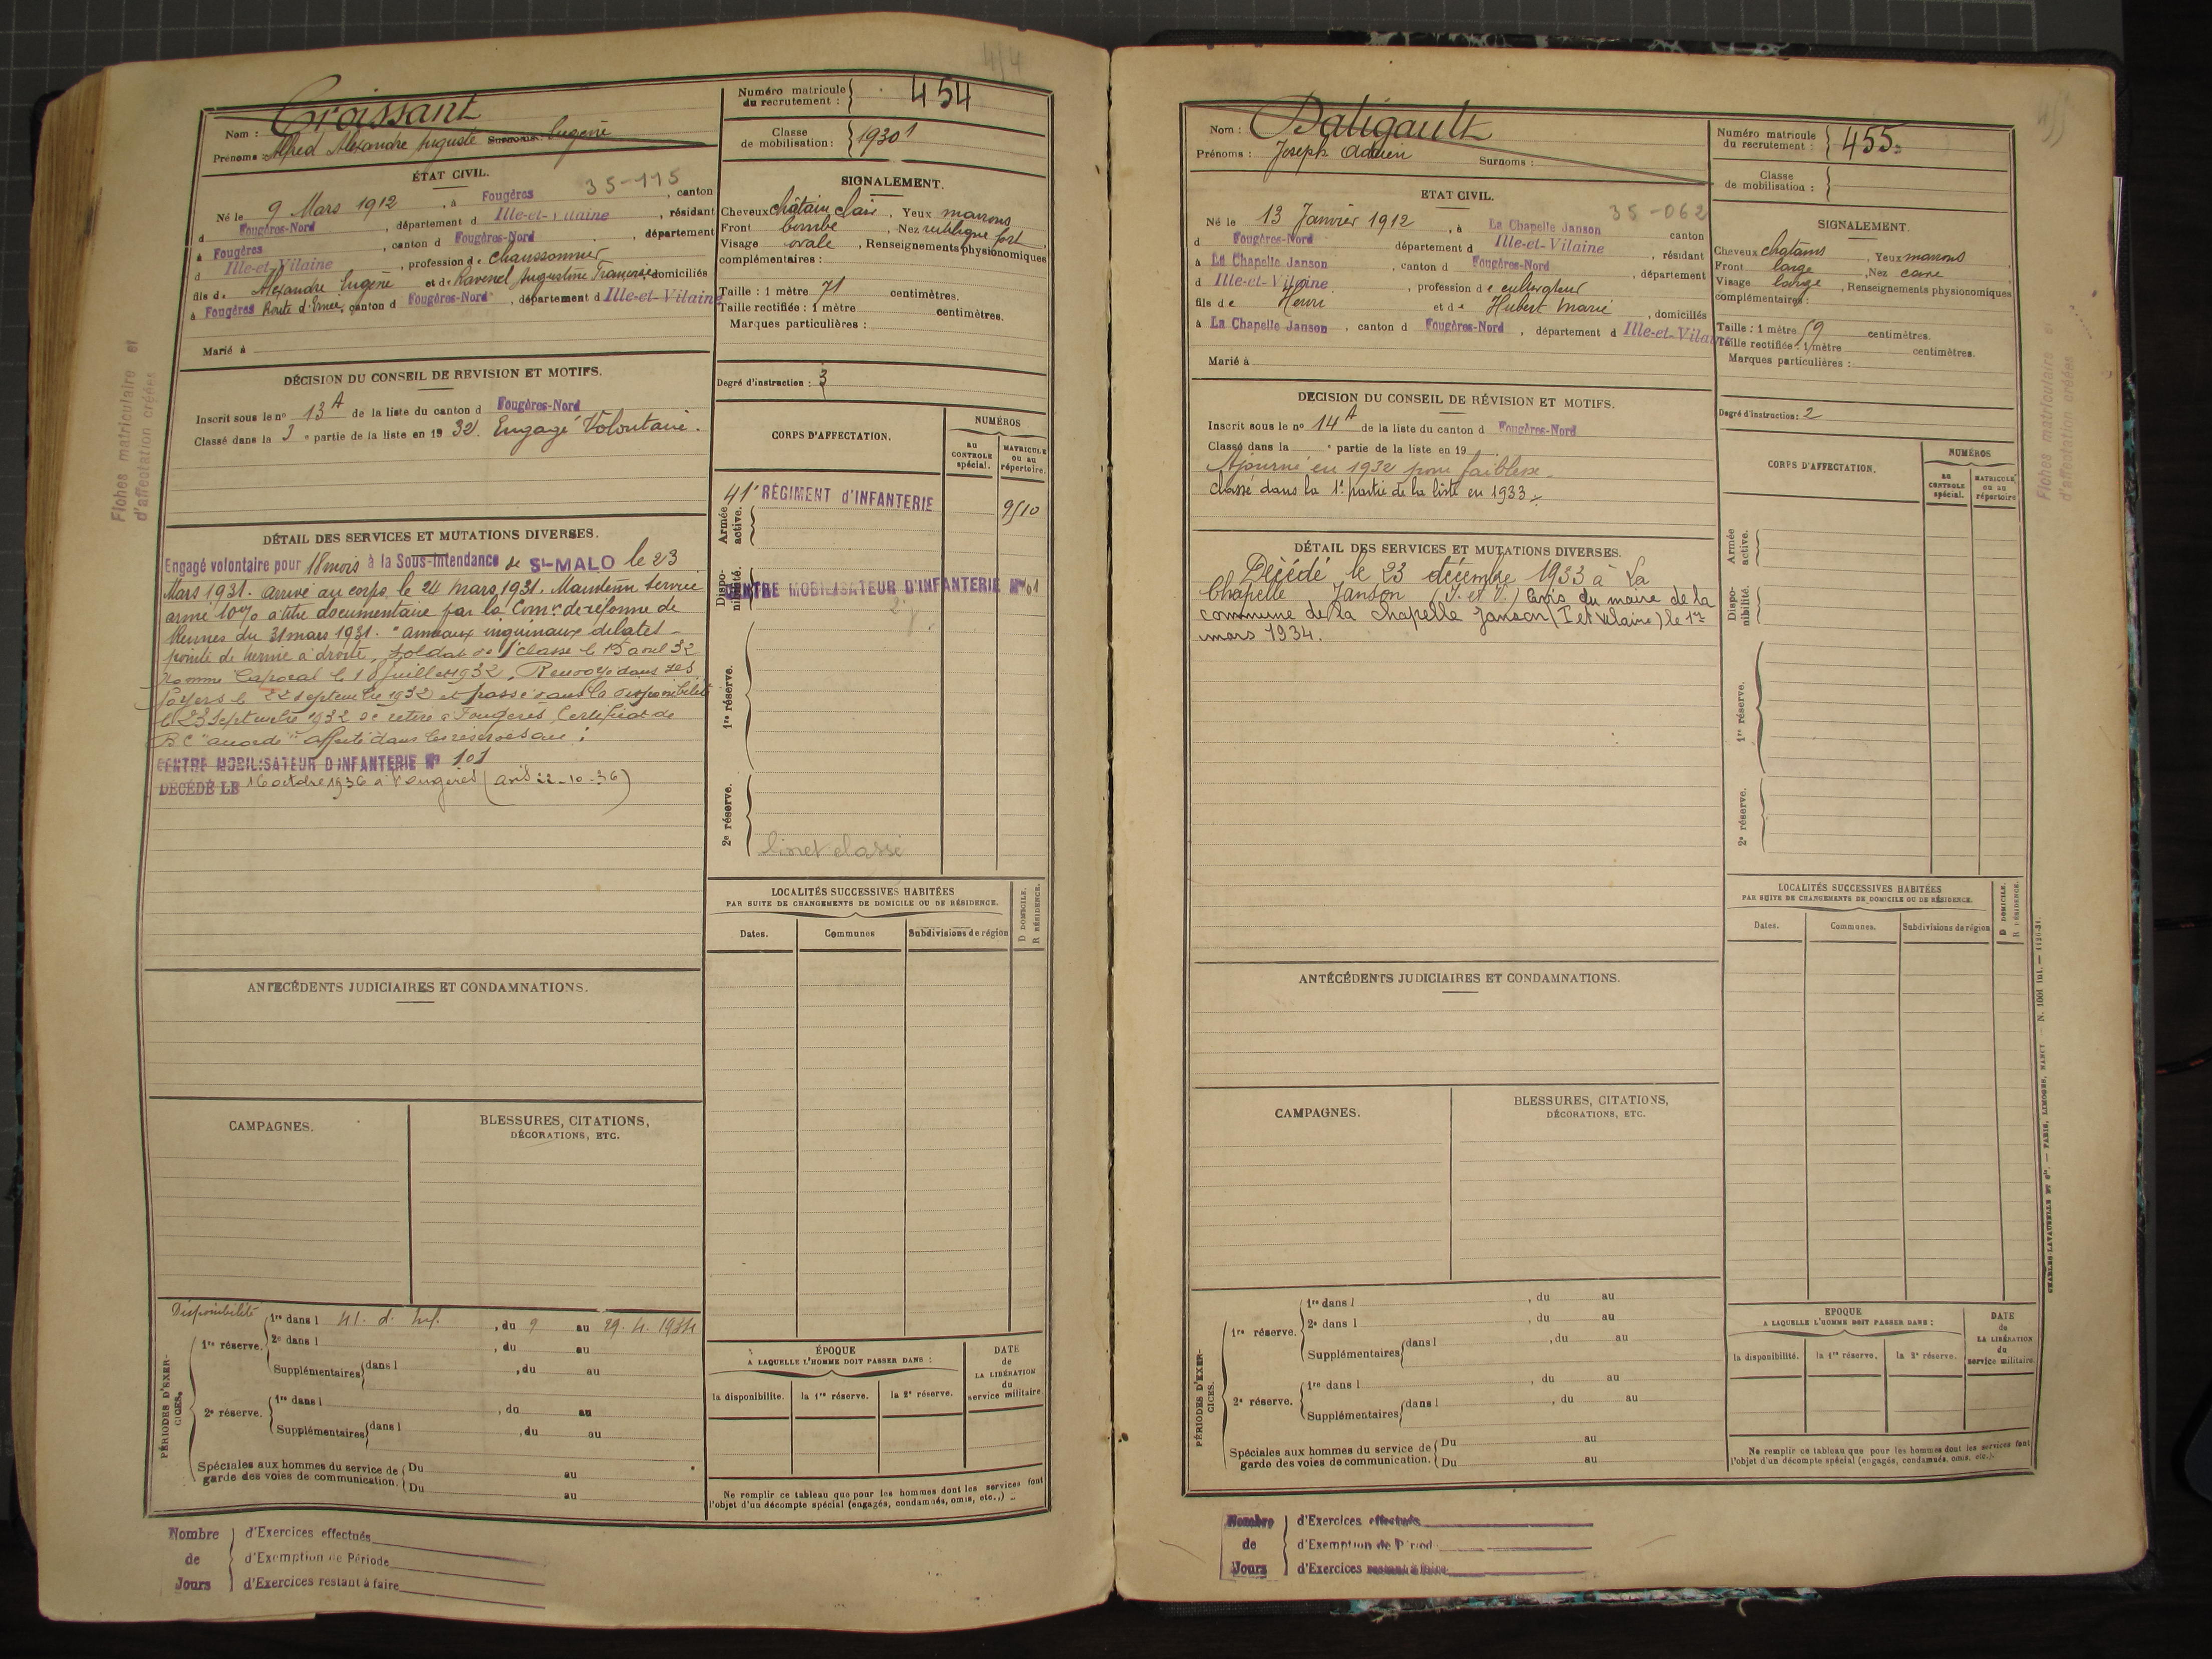 454
Numéro matricule du recrutement : 454
Nom : Croissant
Prénoms : Alfred Alexandre Auguste Surnoms : Eugene
Classe de mobilisation : 1930
ÉTAT CIVIL.
35-115
Né le 9 Mars 1912, à Fougères, canton
d Fougères-Nord, département d Ille-et-Vilaine, résidant
à Fougères, canton d Fougères-Nord, département
d Ille-et-Vilaine, profession de chaussonnier
fils de Alexandre Eugène et de Ravenel Augustine Françoise domiciliés
à Fougères Route d'Ernée, canton d Fougères-Nord, département d Ille-et-Vilaine
Marié à
SIGNALEMENT.
Cheveux châtain clair, Yeux marrons
Front bombé, Nez rectiligne fort
Visage ovale, Renseignements physionomiques
complémentaires :
Taille : 1 mètre 71 centimètres.
Taille rectifiée : 1 mètre centimètres.
Marques particulières :
Degré d'instruction : 3
DÉCISION DU CONSEIL DE REVISION ET MOTIFS.
Inscrit sous le n° 13A de la liste du canton d Fougères-Nord
Classé dans la 3e partie de la liste en 1932. Engagé Volontaire.
DÉTAIL DES SERVICES ET MUTATIONS DIVERSES.
Engagé volontaire pour 18 mois à la Sous-Intendance de St-MALO le 23
Mars 1931. Arrivé au corps le 24 mars 1931. Maintenu service
armé 10% à titre documentaire par la Comon de réforme de
Rennes du 31 mars 1931. "anneaux inguinaux dilatés -
pointe de hernie à droite, soldat de 1e classe le 15 avril 32
Nommé Caporal le 18 juillet 1932. Renvoyé dans ses
foyers le 22 septembre 1932 et passé dans la disponibilité
le 23 septembre 1932 se retire à Fougères, Certificat de
BC "accordé" affecté dans les réserves au :
CENTRE MOBILISATEUR D'INFANTERIE N° 101
DÉCÉDÉ LE 16 octobre 1936 à Fougères (avis 22-10-36)
CORPS D'AFFECTATION.
NUMÉROS
au CONTROLE spécial.
MATRICULE ou au répertoire.
Armée active.
41e RÉGIMENT d'INFANTERIE
9510
Disponibilité.
CENTRE MOBILISATEUR D'INFANTERIE N° 101
1re réserve.
2e réserve.
livret classé
LOCALITÉS SUCCESSIVES HABITÉES
PAR SUITE DE CHANGEMENTS DE DOMICILE OU DE RÉSIDENCE.
D DOMICILE.
R RÉSIDENCE.
Dates.
Communes
Subdivisions de région
ANTÉCÉDENTS JUDICIAIRES ET CONDAMNATIONS.
CAMPAGNES.
BLESSURES, CITATIONS,
DÉCORATIONS, ETC.
PÉRIODES D'EXERCICES.
Disponibilité
1re réserve.
1re dans l 41. d. Inf., du 9 au 29. 4. 1934
2e dans l, du au
Supplémentaires dans l, du au
2e réserve.
1re dans l, du au
Supplémentaires dans l, du au
Spéciales aux hommes du service de garde des voies de communication. Du au
Du au
ÉPOQUE
A LAQUELLE L'HOMME DOIT PASSER DANS :
la disponibilité.
la 1re réserve.
la 2e réserve.
DATE de LA LIBÉRATION du service militaire
Ne remplir ce tableau que pour les hommes dont les services font
l'objet d'un décompte spécial (engagés, condamnés, omis, etc.,)
Nombre de Jours
d'Exercices effectués
d'Exemption de Période
d'Exercices restant à faire
Fiches matriculaire et
d'affectation créées
455
Nom : Daligault
Prénoms : Joseph Adrien Surnoms :
Numéro matricule du recrutement : 455
Classe de mobilisation :
ETAT CIVIL.
35-062
Né le 13 Janvier 1912, à La Chapelle Janson canton
d Fougères-Nord département d Ille-et-Vilaine, résidant
à La Chapelle Janson, canton d Fougères-Nord, département
d Ille-et-Vilaine, profession de cultivateur
fils de Henri et de Hubert Marie, domiciliés
à La Chapelle Janson, canton d Fougères-Nord, département d Ille-et-Vilaine
Marié à
SIGNALEMENT.
Cheveux chatains, Yeux marrons
Front large, Nez cave
Visage large, Renseignements physionomiques
complémentaires :
Taille : 1 mètre 59 centimètres.
Taille rectifiée : 1 mètre centimètres.
Marques particulières :
Degré d'instruction : 2
DECISION DU CONSEIL DE RÉVISION ET MOTIFS.
Inscrit sous le n° 14A de la liste du canton d Fougères-Nord
Classé dans la e partie de la liste en 19
Ajourné en 1932 pour faiblesse
classé dans la 1e partie de la liste en 1933.
DÉTAIL DES SERVICES ET MUTATIONS DIVERSES.
Décédé le 23 décembre 1933 à La
Chapelle Janson (I. et V.) Avis du maire de la
commune de la Chapelle Janson (I et Vilaine) le 1er
mars 1934.
CORPS D'AFFECTATION.
NUMÉROS
au CONTROLE spécial.
MATRICULE ou au répertoire
Armée active.
Disponibilité.
1re réserve.
2e réserve.
LOCALITÉS SUCCESSIVES HABITÉES
PAR SUITE DE CHANGEMENTS DE DOMICILE OU DE RÉSIDENCE.
D DOMICILE.
R RÉSIDENCE.
Dates.
Communes.
Subdivisions de région
ANTÉCÉDENTS JUDICIAIRES ET CONDAMNATIONS.
CAMPAGNES.
BLESSURES, CITATIONS,
DÉCORATIONS, ETC.
PÉRIODES D'EXERCICES.
1re réserve.
1re dans l, du au
2e dans l, du au
Supplémentaires dans l, du au
2e réserve.
1re dans l, du au
Supplémentaires dans l, du au
Spéciales aux hommes du service de garde des voies de communication. Du au
Du au
EPOQUE
A LAQUELLE L'HOMME DOIT PASSER DANS :
la disponibilité.
la 1re réserve.
la 2e réserve.
DATE de LA LIBÉRATION du service militaire.
Ne remplir ce tableau que pour les hommes dont les services font
l'objet d'un décompte spécial (engagés, condamnés, omis, etc.).
Nombre de Jours
d'Exercices effectués
d'Exemption de Période
d'Exercices restant à faire
Fiches matriculaire et
d'affectation créées
CHARLES-LAVAUZELLE ET Cie. — PARIS, LIMOGES, NANCY N. 1001 Int. — 1120-31.